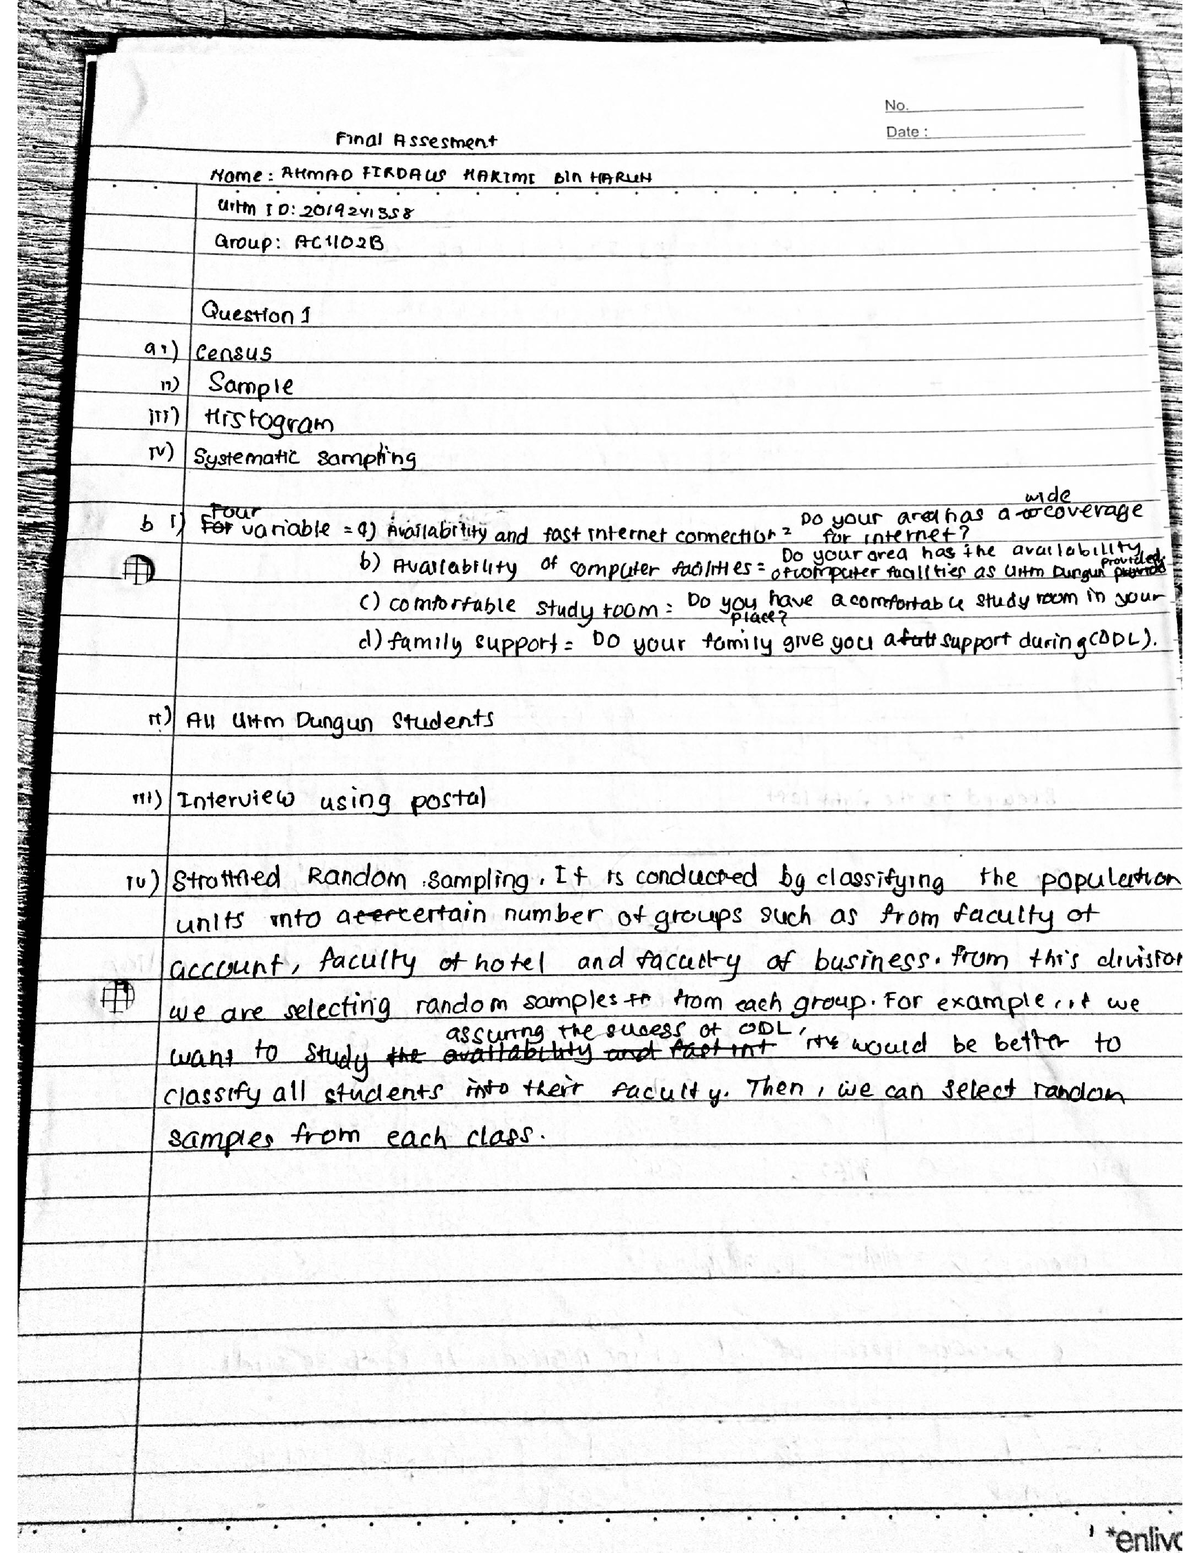 No.
Date :
Final Assesment
Name: AHMAD FIRDAUS HAKIMI Bin HARUN
UiTM ID: 2019241358
Group: AC1102B
Question 1
a i) Census
ii) Sample
iii) Histogram
iv) Systematic sampling
b i) For Four variable = a) Availability and fast internet connection = Do your area has a wide coverage for internet?
b) Availability of computer facilities = Do your area has the availability of computer facilities as UiTM Dungun provided
c) comfortable study room = Do you have a comfortable study room in your place?
d) family support = Do your family give you a full support during (ODL).
ii) All UiTM Dungun Students
iii) Interview using postal
iv) Stratified Random Sampling. It is conducted by classifying the population
units into a certain number of groups such as from faculty of
account, faculty of hotel and faculty of business. from this division
we are selecting random samples from each group. For example, if we
want to study the availability and fast int assuring the sucess of ODL, it would be better to
classify all students into their faculty. Then, we can select random
samples from each class.
*enlivo